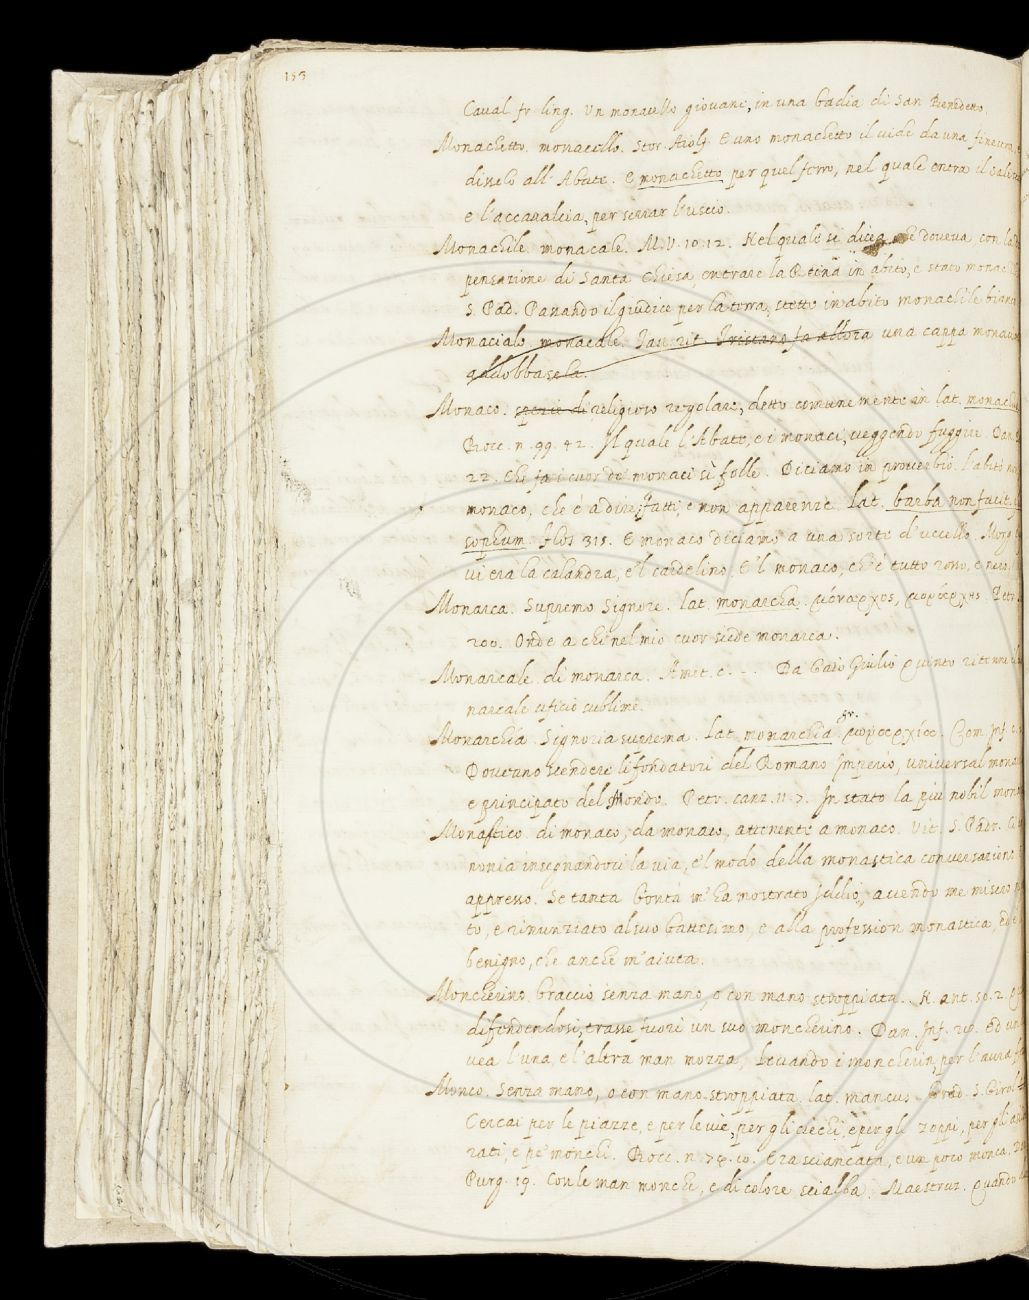 Caval. fr. ling. Un monacello giovane, in una badia di San Benedetto.
Monachetto. monacello. Stor. Aiolf. E uno monachetto il vide da una finestra, e
disselo all'Abate. E monachetto per quel ferro, nel quale entra il
e l'accavalcia, per serrar l'uscio.
Monachile. monacale. M.V. 10.12. Nel quale si dicea, che doveva con la
pensazione di Santa Chiesa, entrare la Reina in abito, e stato
S. Pad. Passando il giudice per la terra, stette in abito monachile
Monaciale. monacale. Tav. rit. Tristano fa allora una cappa
addobbasela.
Monaco. spezie di religioso regolare, detto comunemente in lat. monachus
Bocc. n. 99. 42. Il quale l'Abate, e i monaci, veggendo fuggire. Dan.
22. Che fa i cuor de' monaci sì folle. Diciamo in proverbio. l'abito
monaco, che è a dire, fatti, e non apparenze. lat. barba non facit
sophum. flos 315. E monaco diciamo a una sorte d'uccello. Morg.
vi era la calandra, e'l cardelino. E'l monaco, ch'è tutto rosso, e nero.
Monarca. Supremo Signore. lat. monarcha. μόναρχος, μονάρχης. Petr.
200. Onde a chi nel mio cuor siede monarca.
Monarcale. di monarca. Amet. c. ... Da Gaio Giulio Quinto
narcale uficio sublime.
gr.
Monarchia. Signoria suprema. lat. monarchia μοναρχία. Com. Inf.
Dovevano scendere li fondatori del Romano Imperio, universal
e principato del Mondo. Petr. canz. 11. 7. In stato la più nobil
Monastico. di monaco, da monaco, attenente a monaco. Vit. S. Padr.
nonia insegnandoci la via, e'l modo della monastica conversazione
appresso. Se tanta bontà m'ha mostrato Iddio, avendo me misero
to, e rinunziato al suo battesimo, e alla profession monastica,
benigno, che anche m'aiuta.
Moncherino. braccio senza mano, o con mano stroppiata. N. ant. 50. 2.
difendendosi, trasse fuori un suo moncherino. Dan. Inf. 28. Ed un
vea l'una, e l'altra man mozza, Levando i moncherin, per l'aura
Monco. Senza mano, o con mano stroppiata. lat. mancus. Pred. S.
Cercai per le piazze, e per le vie, per gli ciechi, e per gli zoppi, per gli
rati, e pe' monchi. Bocc. n. Era sciancata, e un poco monca.
Purg. 19. Con le man monche, e di colore scialba. Maestruz. Quando